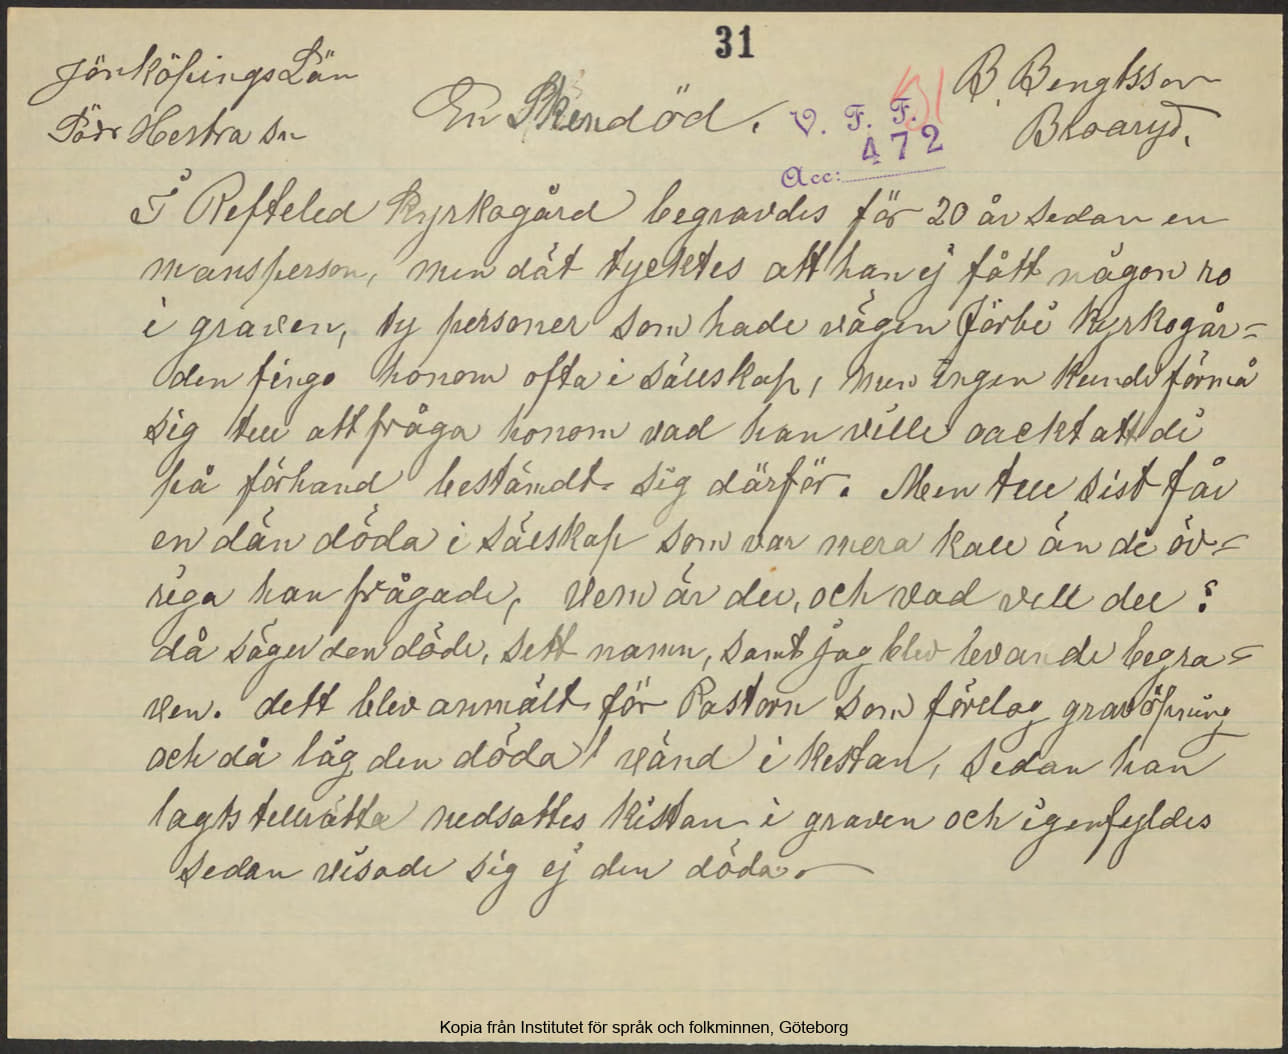 31
Jönköpings Län
Södr Hestra Sn
En Skendöd.
V. F. F.
Acc: 472
B. Bengtsson
Broaryd.
I Refteled Kyrkogård begravdes för 20 år sedan en
mansperson, men dät tycktes att han ej fått någon ro
i graven, ty personer som hade vägen förbi Kyrkogår=
den fingo honom ofta i sällskap, men ingen kunde förmå
sig till att fråga honom vad han ville oacktatt di
på förhand bestämdt sig därför. Men till sist får
en dän döda i sälskap som var mera kall än di öv=
riga han frågade, Vem är du, och vad vill du?
då säger den döde, sitt namn, samt jag blev levande begra=
ven. dett blev anmält för Pastorn som förelog gravöpning
och då låg den döda vänd i kistan, sedan han
lagts tillrätta nedsattes kistan i graven och igenfyldes
sedan visade sig ej den döda.
Kopia från Institutet för språk och folkminnen, Göteborg